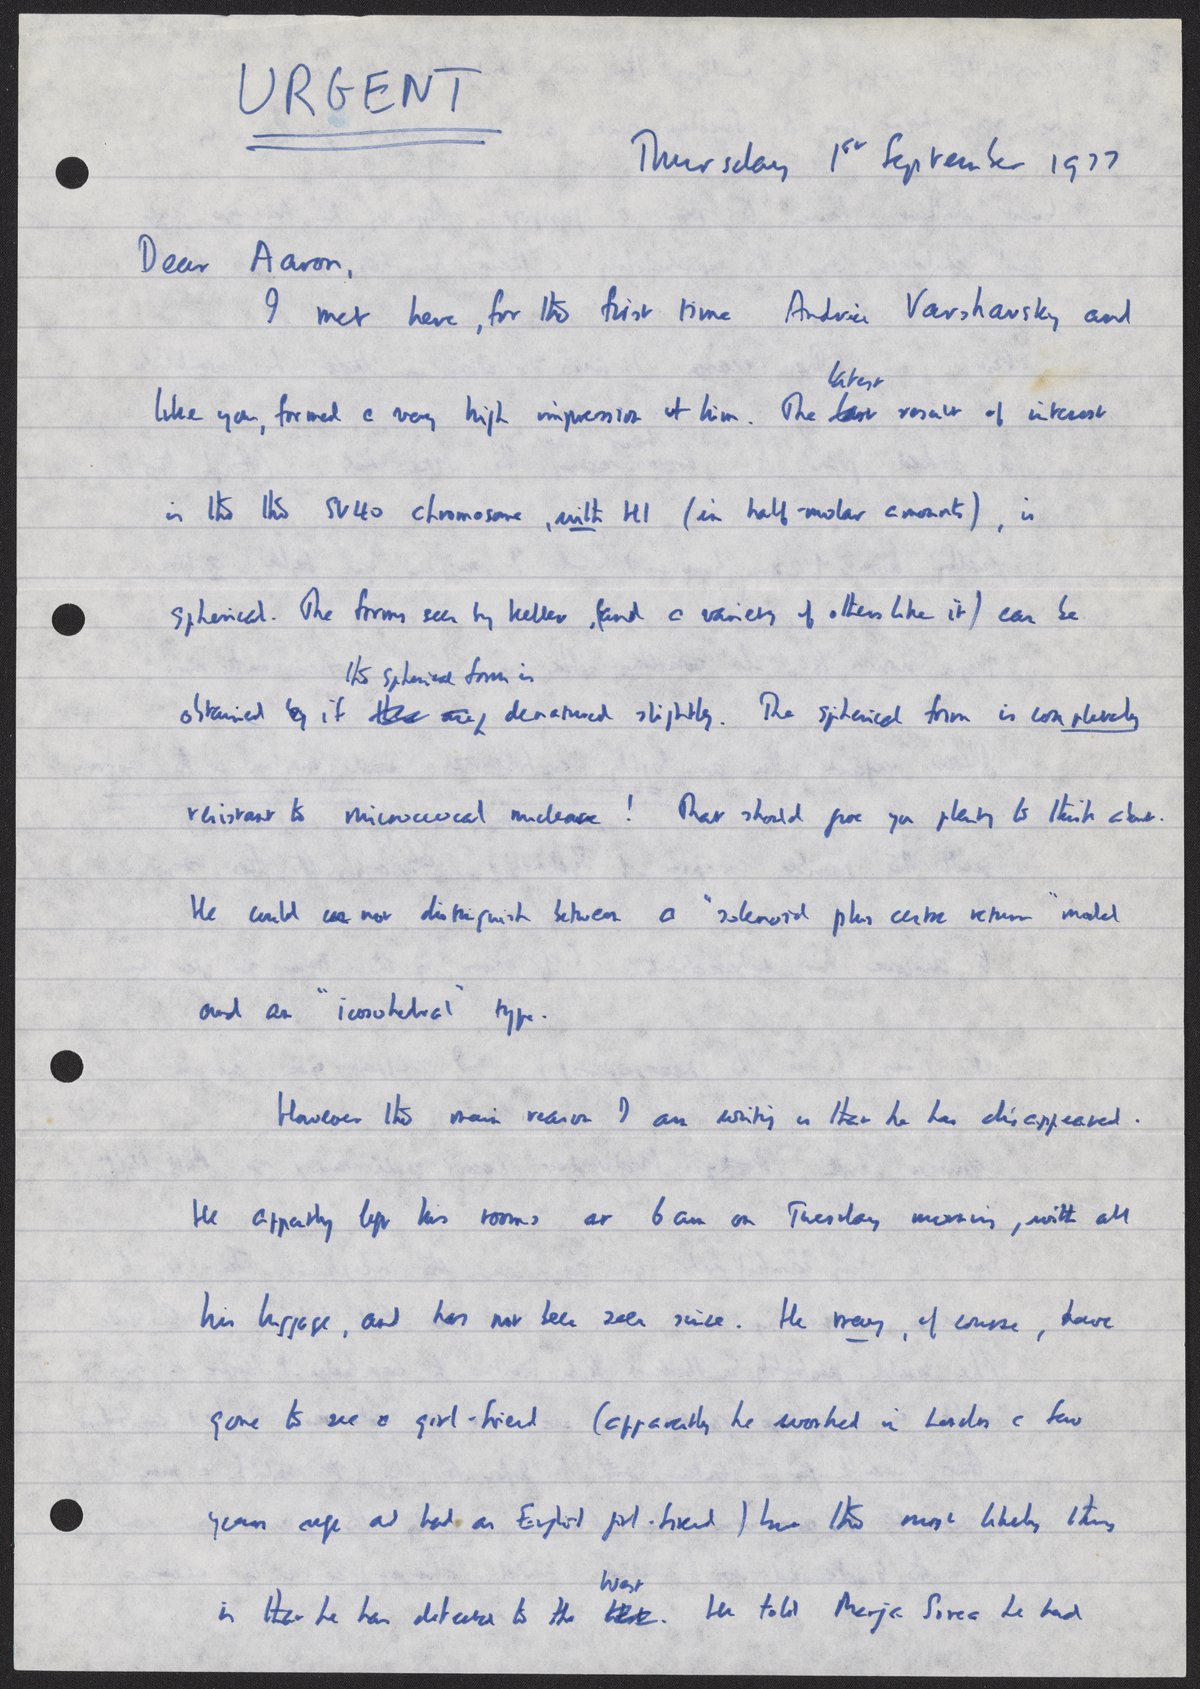 URGENT
Thursday 1st September 1977
Dear Aaron,
I met here, for the first time Andrei Varshavsky and
like you, formed a very high impression of him. The last latest result of interest
is that the SV40 chromosome, with H1 (in half-molar amounts), is
spherical. The forms seen by Keller, (and a variety of others like it) can be
the spherical form is
obtained by if denatured slightly. The spherical form is completely
resistant to micrococcal nuclease! That should give you plenty to think about.
He could not distinguish between a "solenoid plus centre return" model
and an "icosohedral" type.
However the main reason I am writing is that he has disappeared.
He appartly left his rooms at 6 am on Tuesday morning, with all
his luggage, and has not been seen since. He may, of course, have
gone to see a girl-friend (apparently he worked in London a few
years ago and had an English girl-friend) but the most likely thing
is that he has defected to the West. He told Marja Sorsa he had